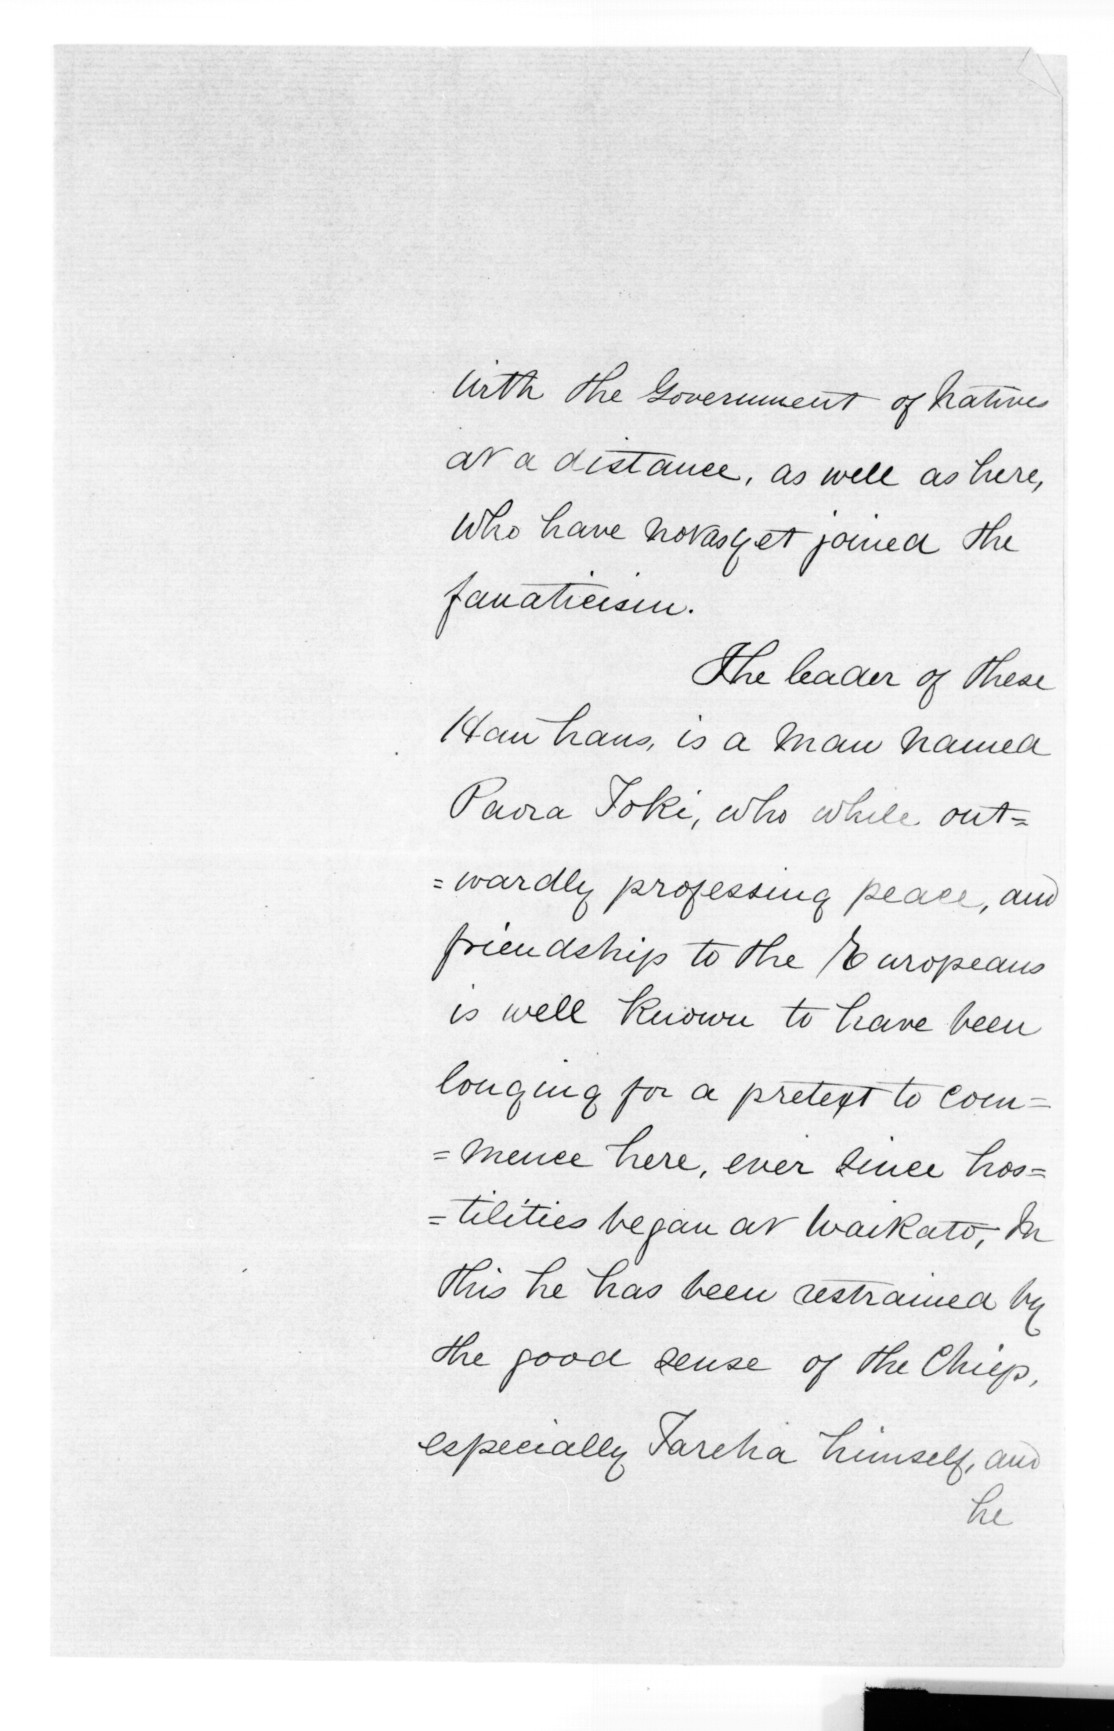 with the Government of Natives
at a distance, as well as here,
who have not as yet joined the
fanaticism.
The leader of these
Hau haus, is a man named
Paora Toki, who while out=
=wardly professing peace, and
friendship to the Europeans
is well known to have been
longing for a pretext to com=
=mence here, ever since hos=
=tilities began at Waikato, In
this he has been restrained by
the good sense of the Chiefs,
especially Tareha himself, and
he